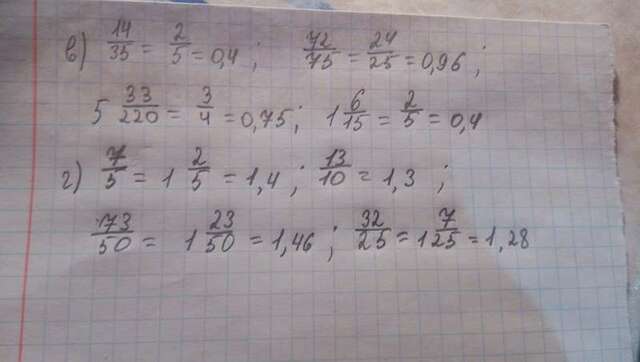 в) 14/35 = 2/5 = 0,4 ; 72/75 = 24/25 = 0,96 ;
5 33/220 = 3/4 = 0,75 ; 1 6/15 = 2/5 = 0,4
г) 7/5 = 1 2/5 = 1,4 ; 13/10 = 1,3 ;
73/50 = 1 23/50 = 1,46 ; 32/25 = 1 7/25 = 1,28